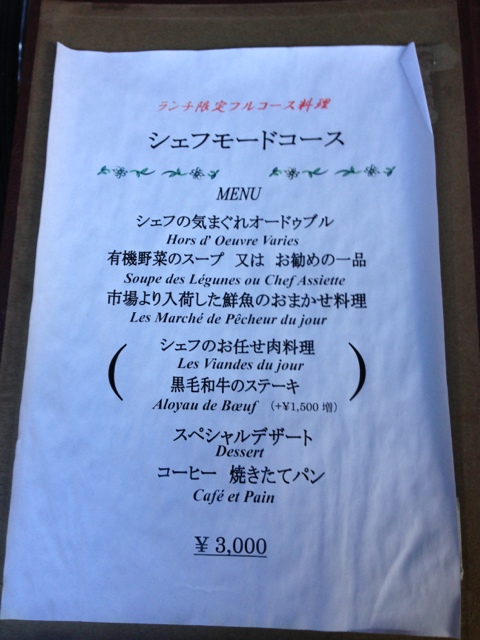 ランチ限定フルコース料理
シェフモードコース
MENU
シェフの気まぐれオードゥブル
Hors d' Oeuvre Varies
有機野菜のスープ 又は お勧めの一品
Soupe des Légunes ou Chef Assiette
市場より入荷した鮮魚のおまかせ料理
Les Marché de Pêcheur du jour
シェフのお任せ肉料理
Les Viandes du jour
黒毛和牛のステーキ
Aloyau de Bœuf (+¥1,500 増)
スペシャルデザート
Dessert
コーヒー 焼きたてパン
Café et Pain
¥ 3,000